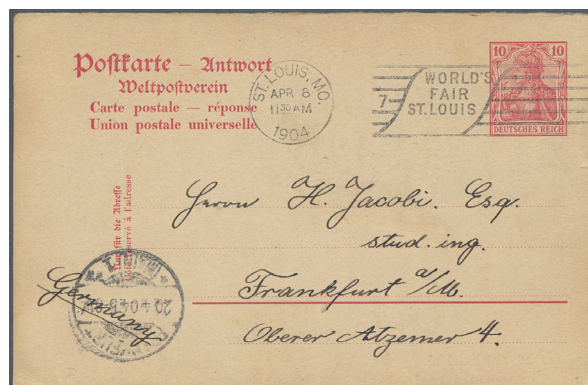 Postkarte — Antwort
Weltpostverein
Carte postale — réponse
Union postale universelle
ST. LOUIS, MO.
APR 8
11 30 AM
1904
7
WORLD'S
FAIR
ST. LOUIS
10 10
DEUTSCHES REICH
Nur für die Adresse
réservé à l'adresse
Herrn H. Jacobi. Esq.
stud. ing.
Frankfurt a/M.
Oberer Atzemer 4.
Germany
20.4.04